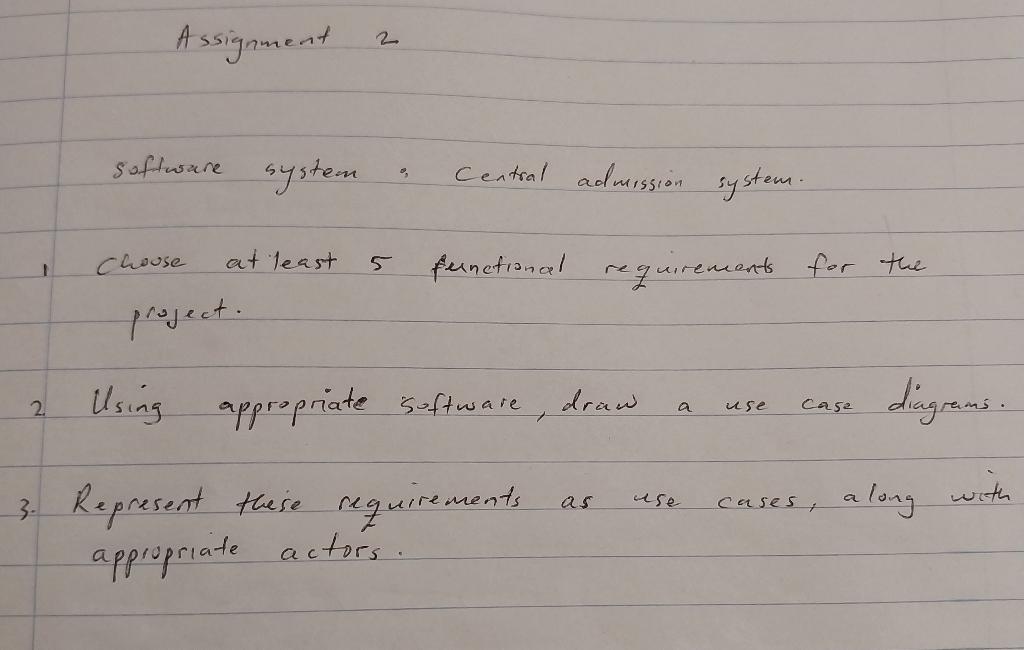 Assignment 2
Software system : Central admission system.
1 Choose at least 5 functional requirements for the
project.
2 Using appropriate software, draw a use case diagrams.
3. Represent these requirements as use cases, along with
appropriate actors.